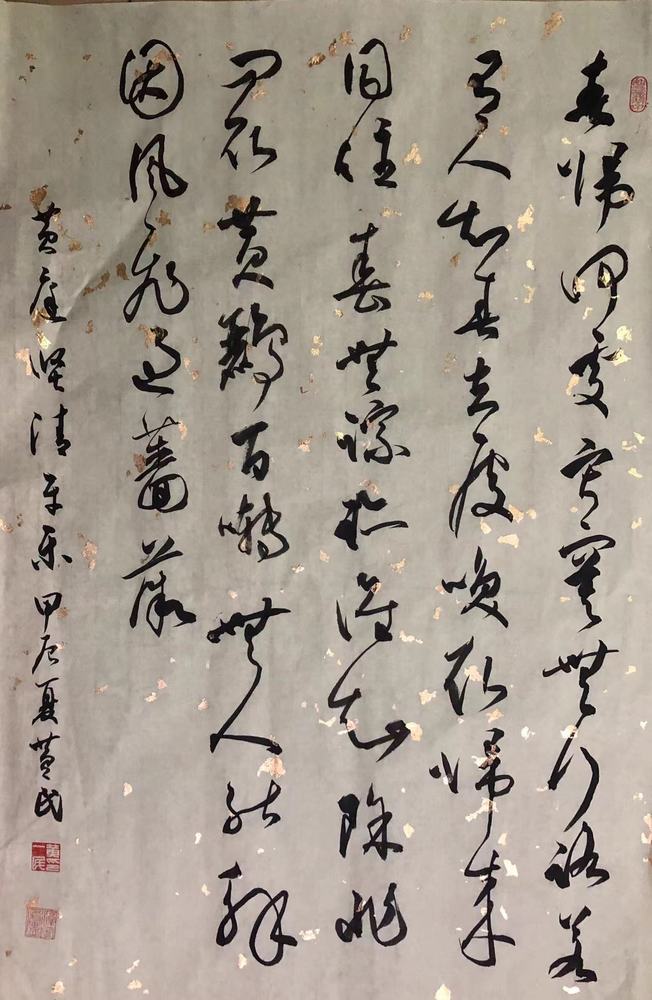 春歸何處寂寞無行路若
有人知春去處喚取歸來
同住春無蹤跡誰知除非
問取黃鸝百囀無人能解
因風飛過薔薇
黃庭堅清平樂甲辰夏黃民